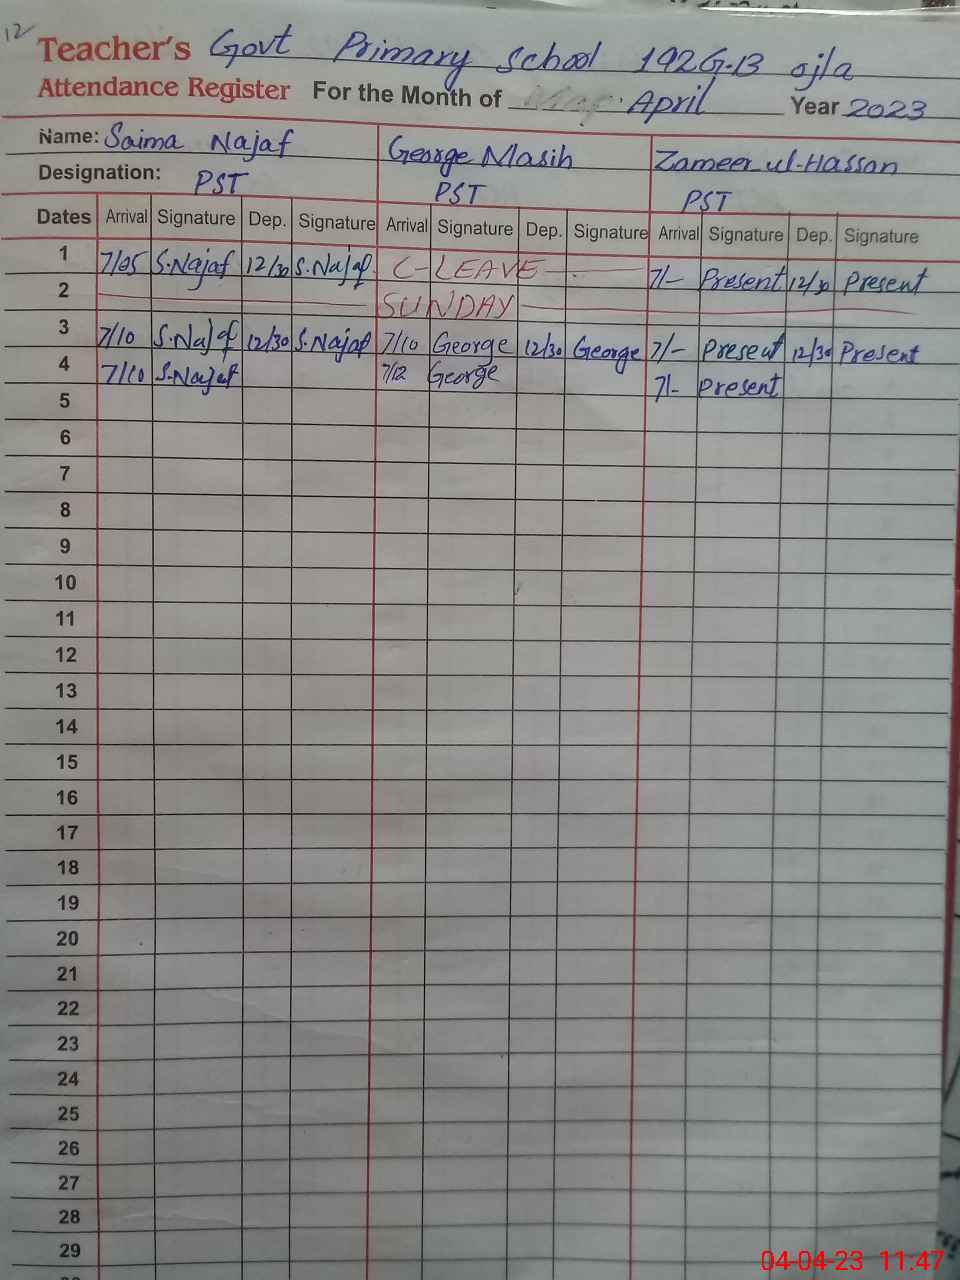 12
Teacher's Govt Primary School 192G.B ojla
Attendance Register For the Month of April Year 2023
Name: Saima Najaf George Masih Zameer ul-Hassan
Designation: PST PST PST
Dates Arrival Signature Dep. Signature Arrival Signature Dep. Signature Arrival Signature Dep. Signature
1 7/05 S.Najaf 12/30 S.Najaf C-LEAVE 7/- Present 12/30 Present
2 SUNDAY
3 7/10 S.Najaf 12/30 S.Najaf 7/10 George 12/30 George 7/- Present 12/30 Present
4 7/10 S.Najaf 7/12 George 7/- Present
5
6
7
8
9
10
11
12
13
14
15
16
17
18
19
20
21
22
23
24
25
26
27
28
29
04-04-23 11.47